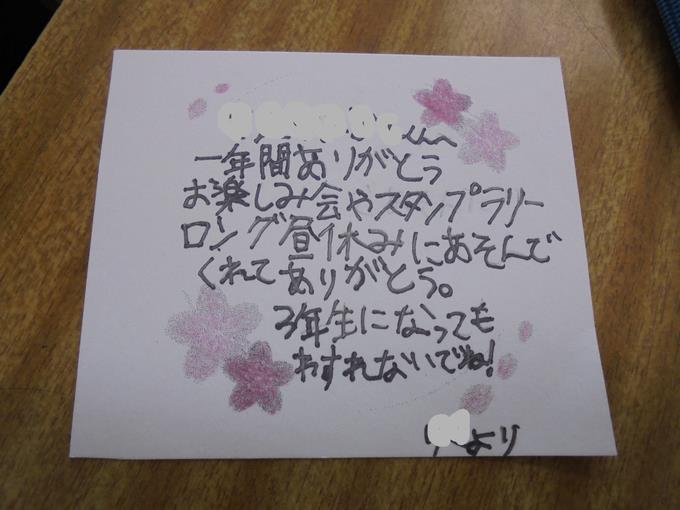 くんへ
一年間ありがとう
お楽しみ会やスタンプラリー
ロング昼休みにあそんで
くれてありがとう。
3年生になっても
わすれないでね!
より